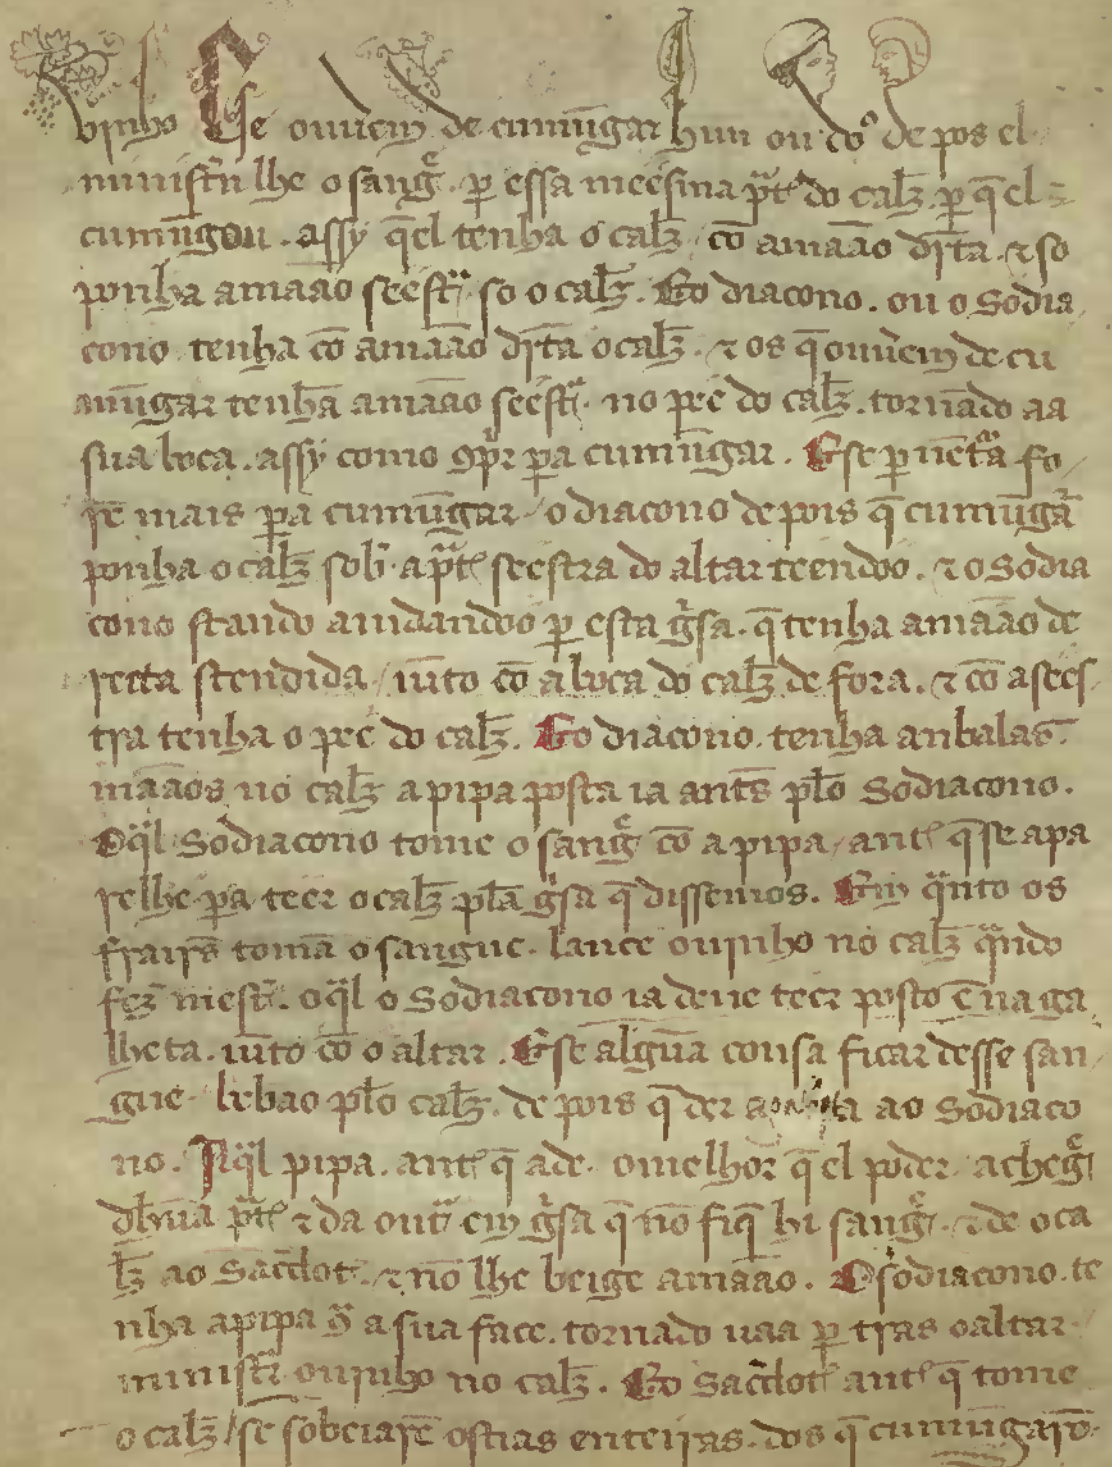 vinho E se ouuem de cumūgar hun ou do⁹ de pos el
ministrͥ lhe o sangͤ. ꝑ essa meesma ꝑt̃ do calꝫ ꝑ q̃ el
cumūgou. assy q̃l tenha o calꝫ cō amaāo dr̃ta. ⁊ so
ponha amaāo seestᷓ. so o calꝫ. E o diacono. ou o Sodia
cono tenha cō amaāo dr̃ta o calꝫ. ⁊ os q̃ ouuem de cu
mūgar tenhā amaāo seestᷓ. no pee do calꝫ. tornado aa
sua boca. assy como ꝯpͥr ꝑa cumūgar. E se ꝑ uētᷓa fo
rē mais ꝑa cumūgar / o diacono de pois q̃ cumūgar̃
ponha o calꝫ sobr̃. a pᷓt̃ seestra do altar teendoo. ⁊ o Sodia
cono stando aiudandoo ꝑ esta gͥsa. q̃ tenha amaāo de
reita stendida / iūto cō a boca do calꝫ de fora. ⁊ cō a sees
tra tenha o pee do calꝫ. E o diacono. tenha anbalas
māaos no calꝫ a pipa posta ia ant̃s pl̃o Sodiacono.
O qᷓl Sodiacono tome o sangͤ cō a pipa / ant̃ q̃ se apa
relhe ꝑa teer o calꝫ pl̃a gͥsa q̃ dissemos. Em qᷓnto os
frair̃s tomā o sangue. lance ouinho no calꝫ qᷓndo
fez mest̃. o qᷓl o Sodiacono ia deue teer posto ē na ga
lheta. iūto cō o altar. E se algūa cousa ficar desse san
gue. bebao pl̃o calꝫ. de pois q̃ der ao Sodiaco
no. A qᷓl pipa. ant̃ q̃ a de. o melhor q̃ el poder. achegͤ
dhūa pᷓt̃ ⁊ da outᷓ em gͥsa q̃ nō fiq̃ hi sangͤ. ⁊ de o ca
lꝫ ao Sac̃dot̃. ⁊ nō lhe beige amaāo. O sodiacono. te
nha a pipa gᷓ a sua face. tornado uaa ꝑ tras o altar
ministr̃ ouinho no calꝫ. E o Sac̃dot̃ ant̃ q̃ tome
o calꝫ / se sobeiarē ostias enteiras. dos q̃ cumūgarō.